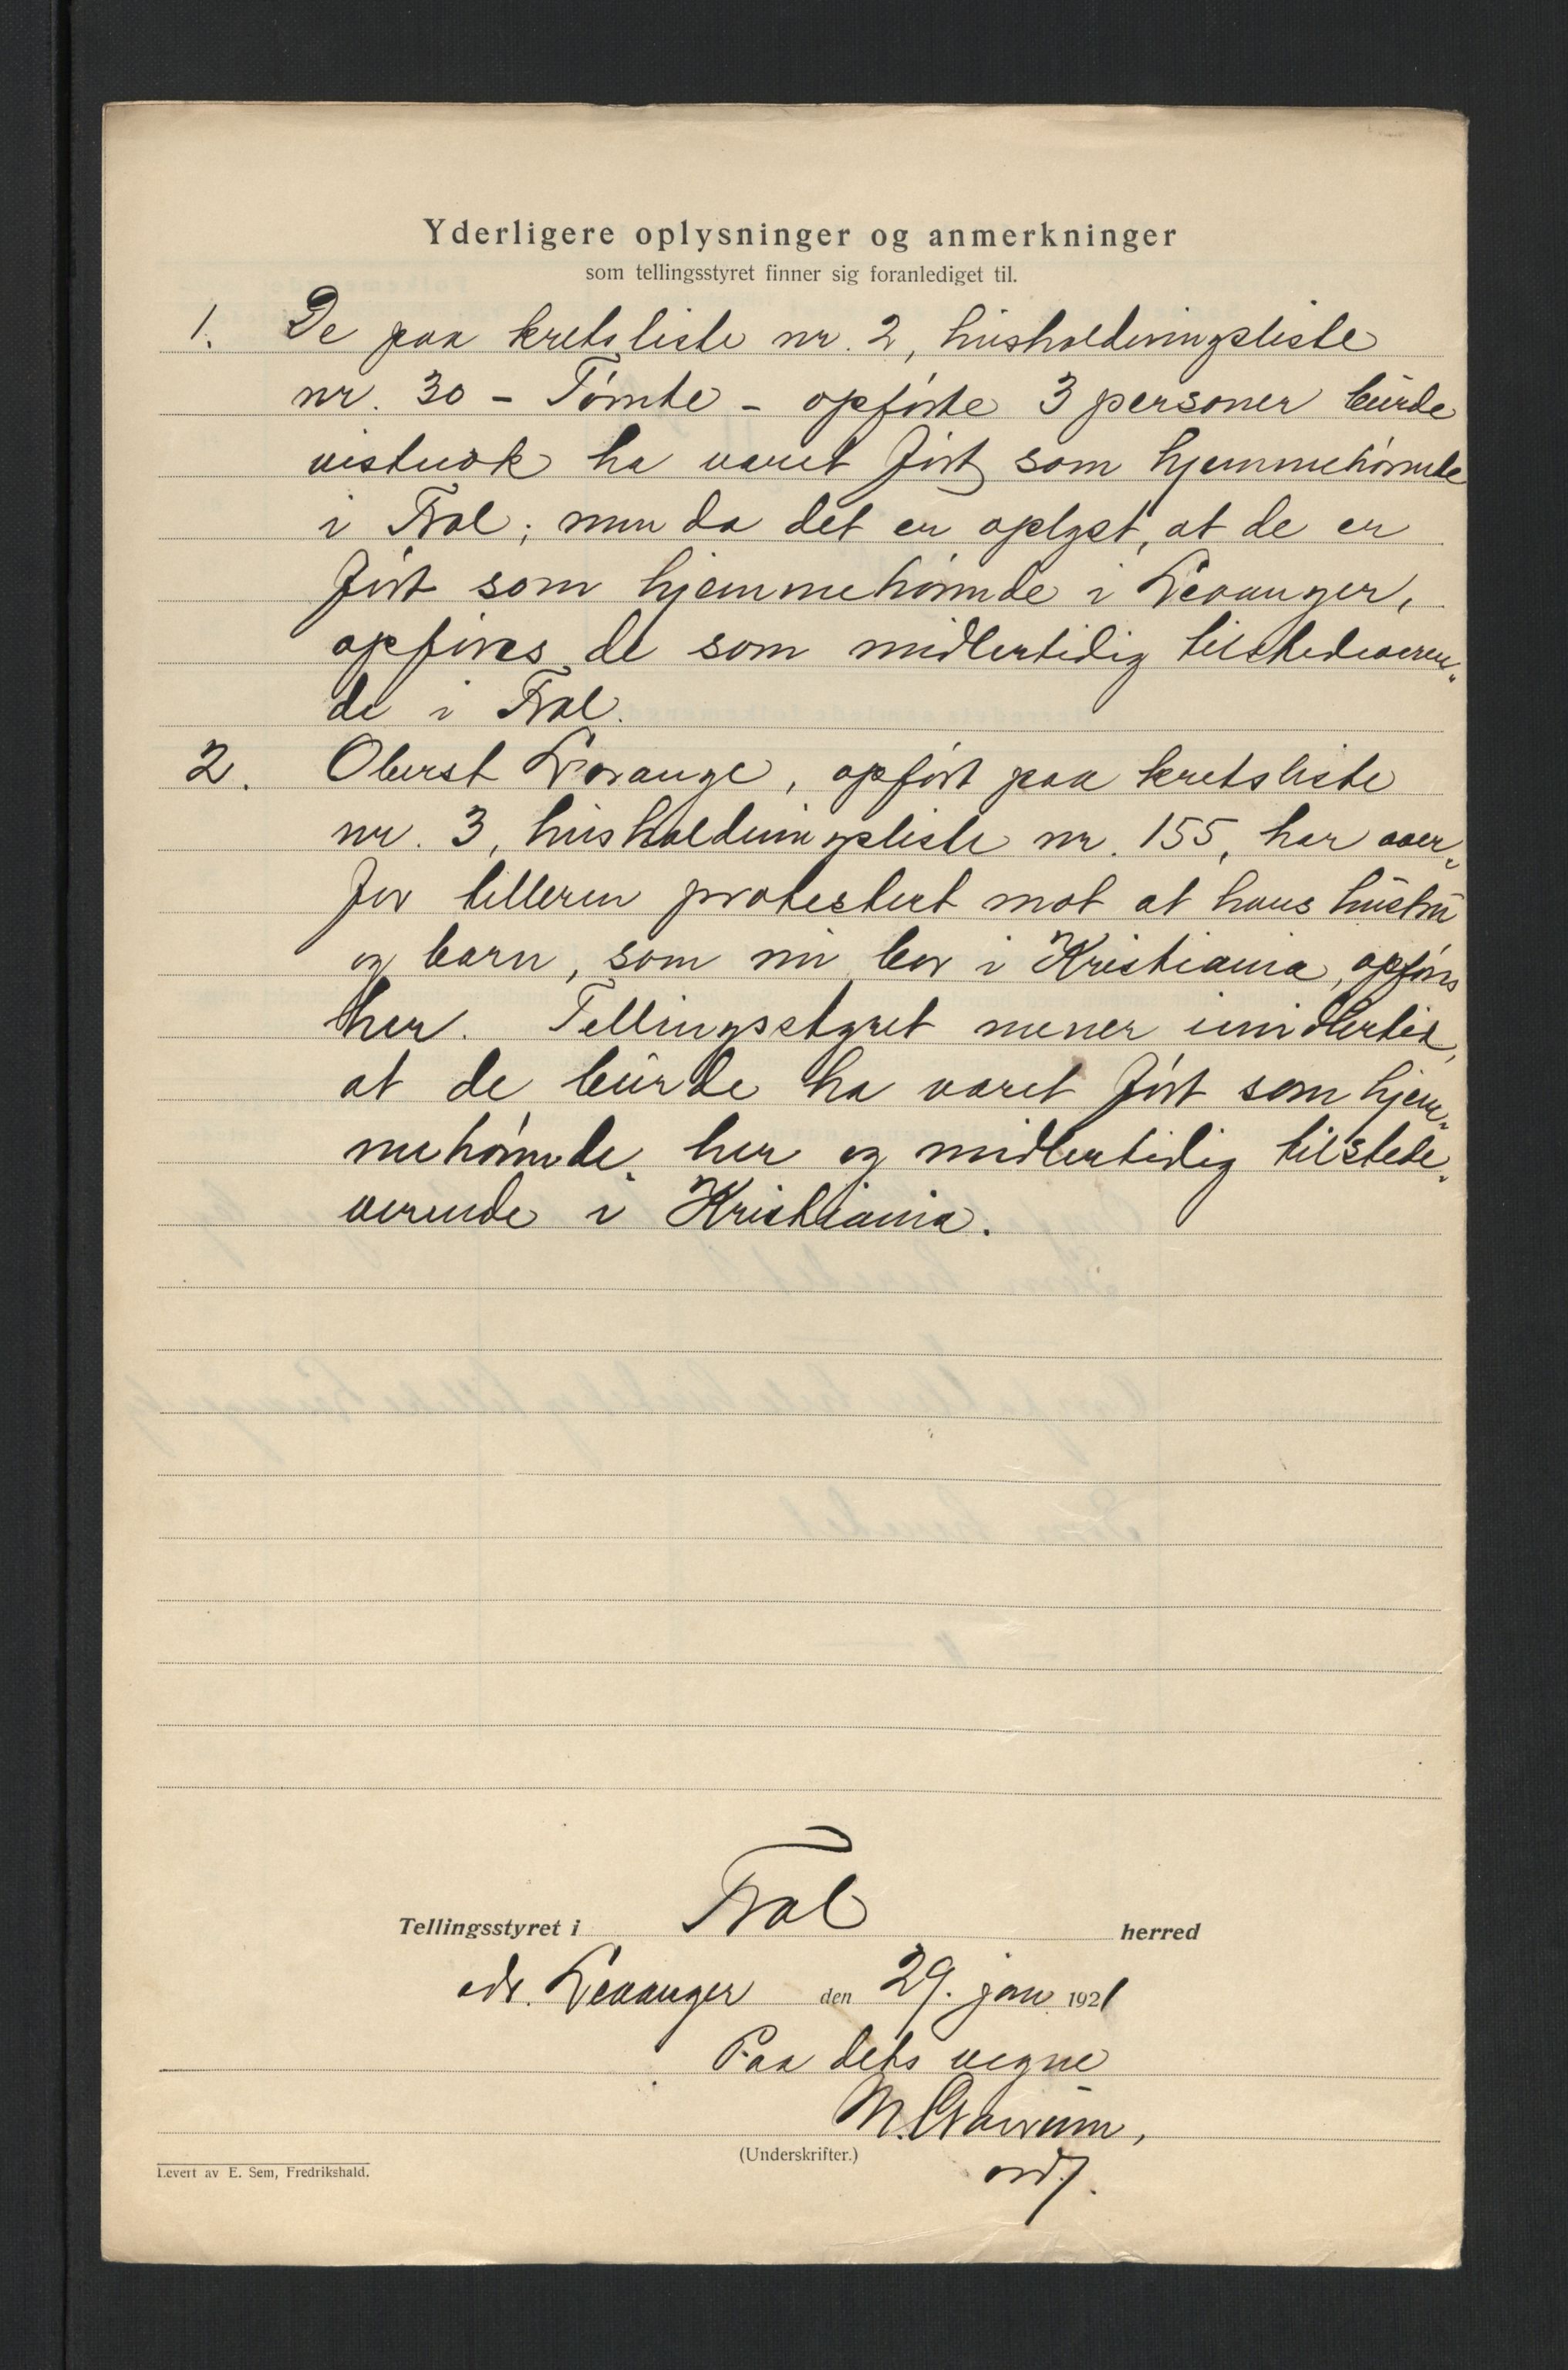 Yderligere oplysninger og anmerkninger
som tellingsstyret finner sig foranlediget til.
1. De paa kretsliste nr. 2, husholdningsliste
nr. 30 - Tømte - opførte 3 personer burde
vistnok ha været ført som hjemmehørende
i Frol; men da det er oplyst, at de er
ført som hjemmehørende i Levanger,
opføres de som midlertidig tilstedeveren„
de i Frol.
2. Oberst Lorange, opført paa kretsliste
nr. 3, husholdningsliste nr. 155, har over„
for telleren protestert mot at hans hustru
og barn, som nu bor i Kristiania, opføres
her. Tellingsstyret mener imidlertid,
at de burde ha været ført som hjem„
mehørende her og midlertidig tilstede„
verende i Kristiania.
Tellingsstyret i Frol herred
adr. Levanger den 29. jan 1921
Paa dets vegne
(Underskrifter.)
ordf.
Levert av E. Sem, Fredrikshald.